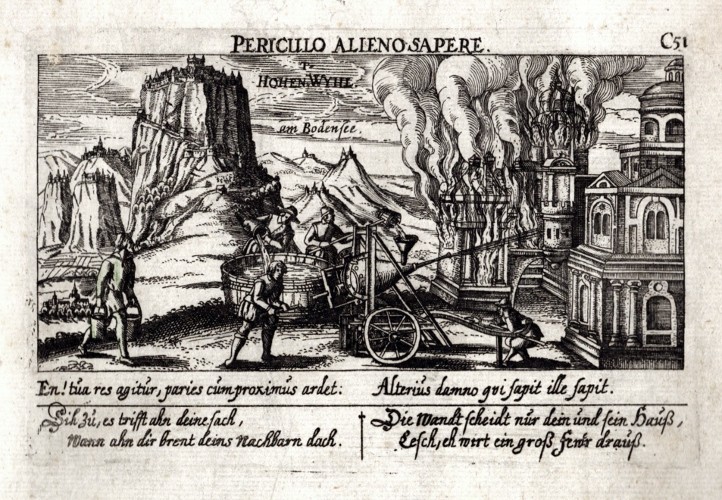 PERICULO ALIENO SAPERE.
C51
HOHEN.WYHL.
am Bodensee.
En! tua res agitur, paries cum proximus ardet: Alterius damno qvi sapit ille sapit.
Sih zu, es trifft ahn deine sach,
Wann ahn dir brent deins Nachbarn dach.
Die Wandt scheidt nur dein und sein Hauß,
Lesch, eh wirt ein groß fewr drauß.